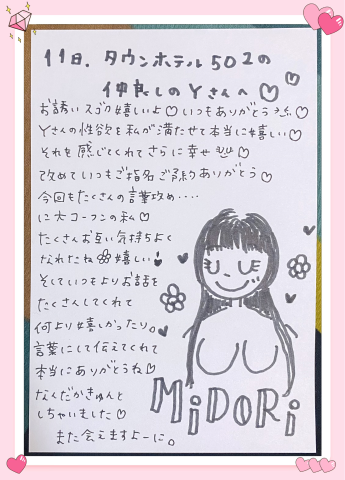 11日、タウンホテル502の
仲良しのYさんへ♡♡
お誘いスゴク嬉しいよ♡いつもありがとう
Yさんの性欲を私が満たせて本当に嬉しい♡
それを感じてくれてさらに幸せ
改めていつもご指名ご予約ありがとう♡
今回もたくさんの言葉攻め‥‥
に大コーフンの私♡
たくさんお互い気持ちよく
なれたね 嬉しい
そしていつもよりお話を
たくさんしてくれて
何より嬉しかったり。
言葉にして伝えてくれて
本当にありがとうね♡
なんだかきゅんと
しちゃいました♡
また会えますよーに。
MiDORi